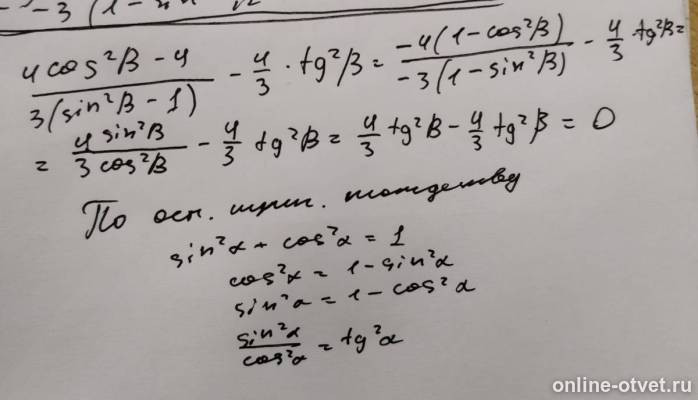 -3(1-
(4cos²β - 4)/(3(sin²β - 1)) - 4/3 · tg²β = (-4(1-cos²β))/(-3(1-sin²β)) - 4/3 tg²β =
= (4 sin²β)/(3 cos²β) - 4/3 tg²β = 4/3 tg²β - 4/3 tg²β = 0
По осн. триг. тождеству
sin²α + cos²α = 1
cos²α = 1 - sin²α
sin²α = 1 - cos²α
sin²α/cos²α = tg²α
online-otvet.ru